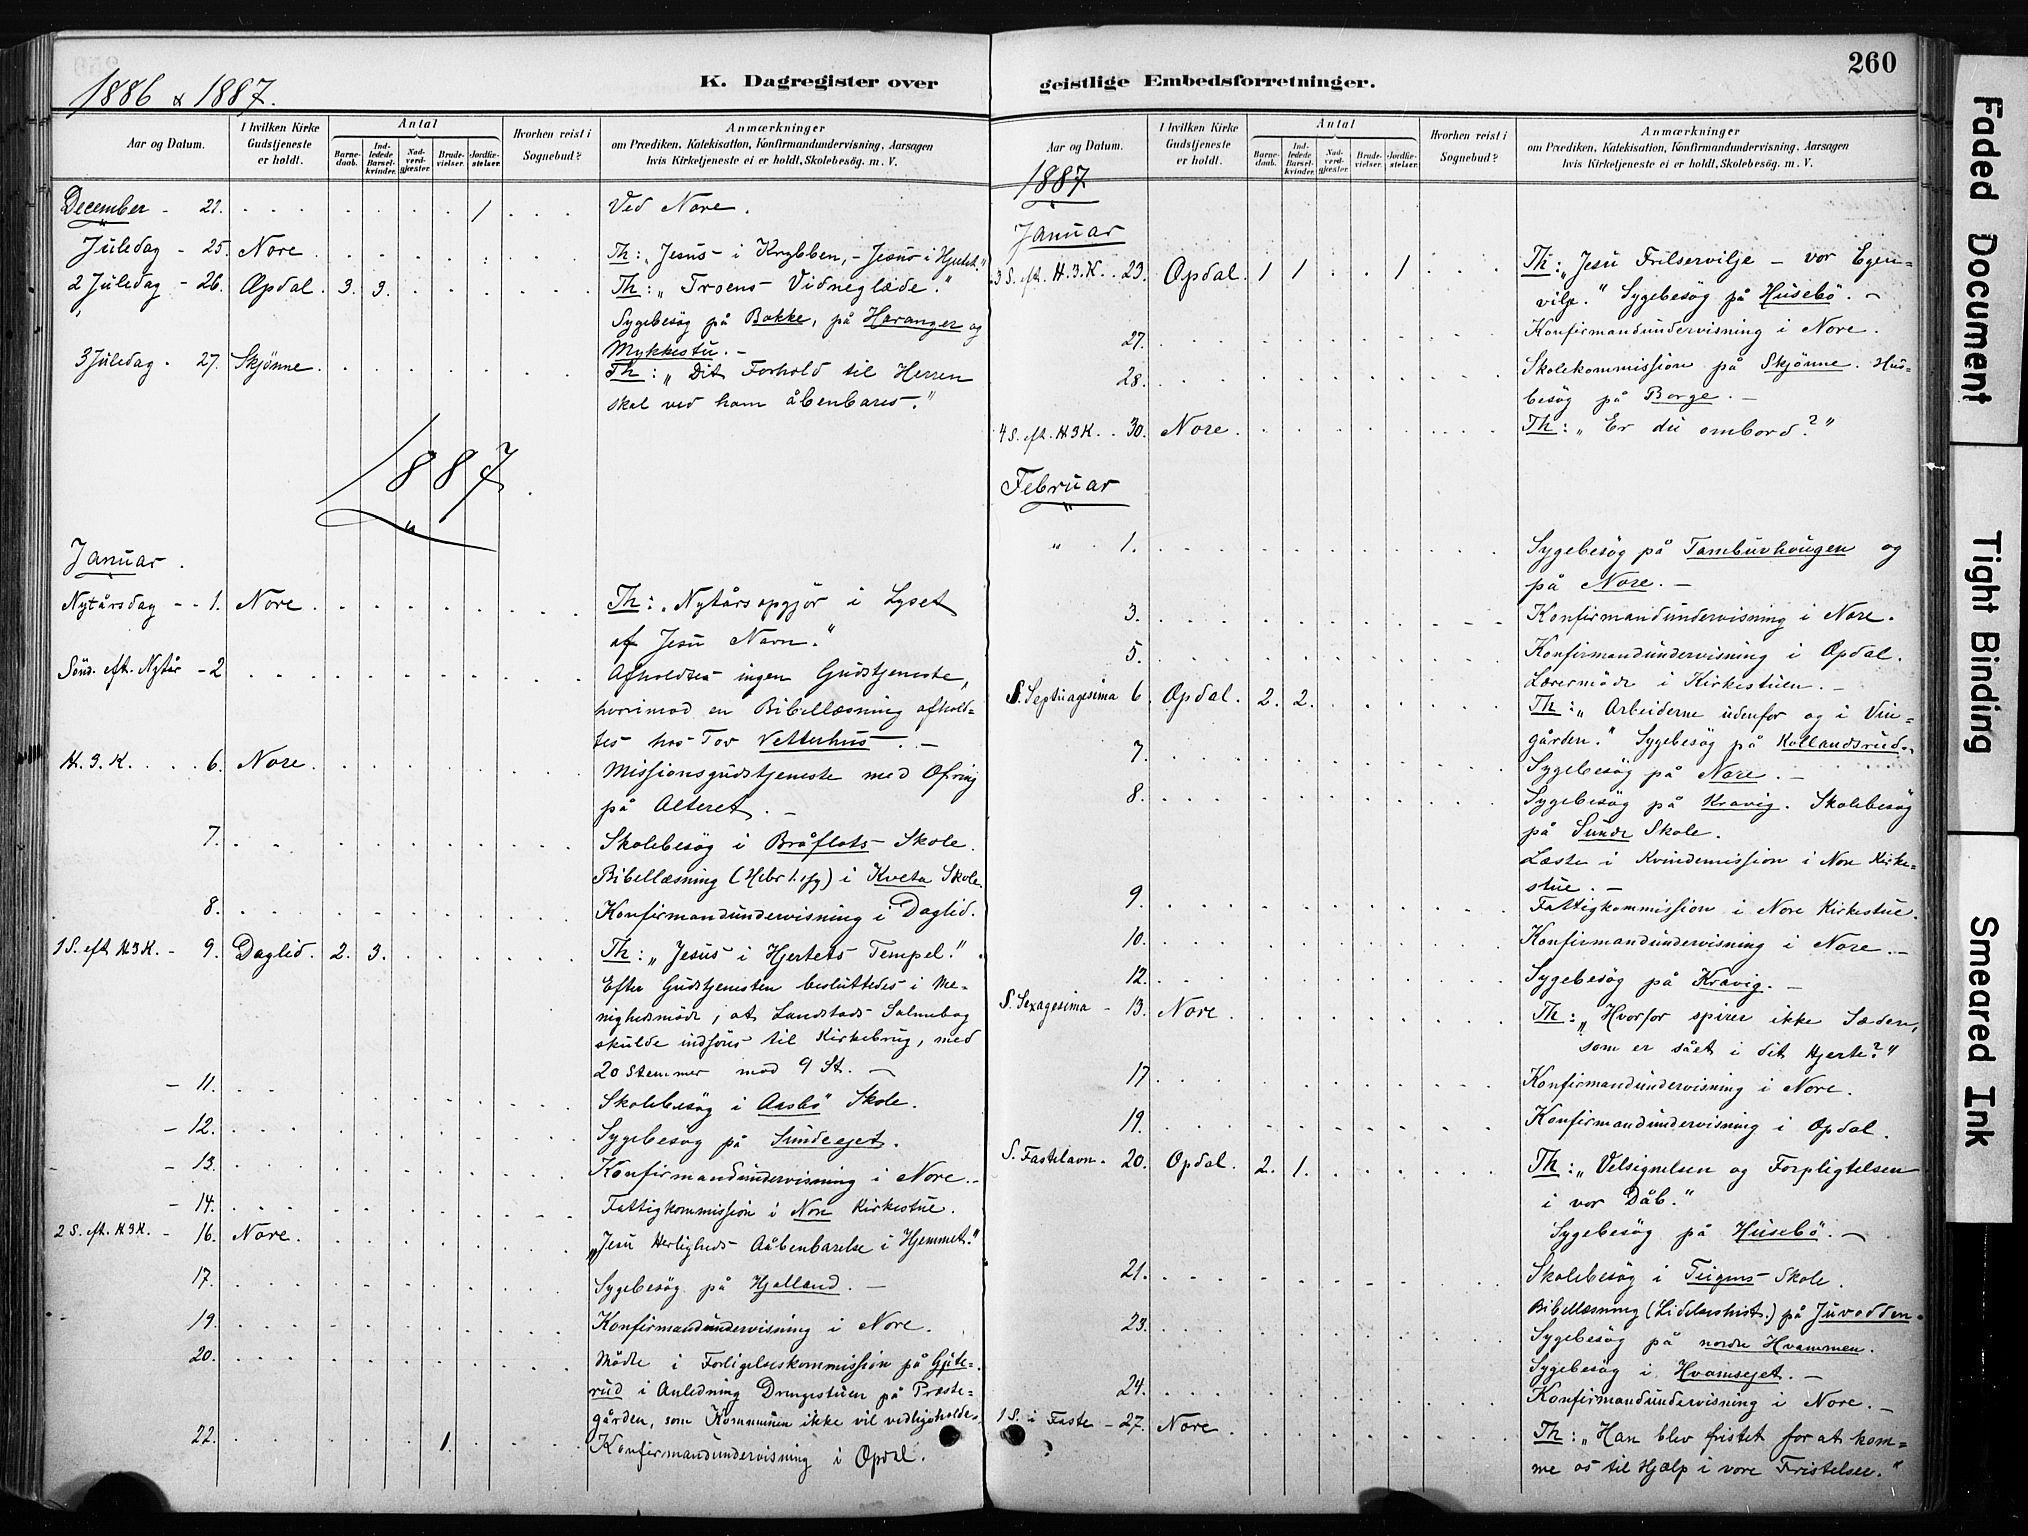 1886 & 1887.
K. Dagregister over
Aar og Datum.
I hvilken Kirke Gudstjeneste er holdt.
Antal
Barnedaab.
Indledede Barselkvinder.
Nadverdgjæster.
Brudevielser.
Jordfæstelser.
Hvorhen reist i Sognebud?
Anmærkninger
om Prædiken, Katekisation, Konfirmandundervisning, Aarsagen
hvis Kirketjeneste ei er holdt, Skolebesøg. m. V.
December - 21. 1 Ved Nore.
Juledag - 25. Nore. Th: „Jesus i Krybben, - Jesus i Hjertet."
2 Juledag - 26. Opdal. 3. 3. Th: „Troens Vidneglæde."
Sygebesøg på Bakke, på Haranger og
Mykkestu. -
3 Juledag - 27. Skjönne. Th: „Dit Forhold til Herren
skal ved ham åbenbares."
1887.
Januar.
Nytårsdag - - 1. Nore. Th: „Nytårsopgjör i Lyset
af Jesu Navn."
Sönd. eft. Nytår - 2 Afholdtes ingen Gudstjeneste,
hvorimod en Bibellæsning afhold-
tes hos Tov Vetterhus. -
H. 3. K. 6. Nore. Missionsgudstjeneste med Ofring
på Alteret. -
7. Skolebesög i Bråflats Skole.
Bibellæsning (Hebr 1. fg) i Kveta Skole.
8. Konfirmandundervisning i Daglid.
1 S. eft H3K. - 9. Daglid. 2. 3. Th: „Jesus i Hjertets Tempel."
Efter Gudstjenesten besluttedes i Me-
nighedsmöde, at Landstads Salmebog
skulde indföres til Kirkebrug, med
20 Stemmer mod 9 St. -
- 11. Skolebesög i Aasbö Skole.
- 12. Sygebesög på Sundeejet.
- 13. Konfirmandundervisning i Nore. -
- 14. Fattigkommission i Nore Kirkestue.
2 S. eft. H3K. - 16. Nore. „Jesu Herligheds Aåbenbarelse i Hjemmet."
17. Sygebesøg på Hjalland. -
19. Konfirmandundervisning i Nore.
20. Mödte i Forligelseskommission på Gjute-
rud i Anledning Drengestuen på Præste-
gården, som Kommunen ikke vil vedligeholde.
22. 1. Konfirmandundervisning i Opdal.
geistlige Embedsforretninger.
260
Aar og Datum.
I hvilken Kirke Gudstjeneste er holdt.
Antal
Barnedaab.
Indledede Barselkvinder.
Nadverdgjæster.
Brudevielser.
Jordfæstelser.
Hvorhen reist i Sognebud?
Anmærkninger
om Prædiken, Katekisation, Konfirmandundervisning, Aarsagen
hvis Kirketjeneste ei er holdt, Skolebesøg. m. V.
1887
Januar
3 S. eft. H.3.K. . 23. Opdal. 1 1 1 Th: „Jesu Frelservilje - vor Egen-
vilje." Sygebesög på Husebö. -
27. Konfirmandundervisning i Nore.
28. Skolekommission på Skjönne. Hus-
besög på Borge. -
4 S. eft. H3K. . 30. Nore. Th: „Er du ombord?"
Februar
" 1. Sygebesög på Tamburhougen og
på Nore. -
3. Konfirmandundervisning i Nore.
5. Konfirmandundervisning i Opdal.
Lærermöde i Kirkestuen. -
S. Septuagesima 6. Opdal. 2. 2. Th: „Arbeiderne udenfor og i Vin-
gården." Sygebesøg på Kollandsrud.
7. Sygebesøg på Nore. -
8. Sygebesög på Kravig. Skolebesög
på Sunde Skole.
Læste i Kvindemission i Nore Kirke-
stue. -
9. Fattigkommission i Nore Kirkestue.
10. Konfirmandundervisning i Nore. -
12. Sygebesøg på Kravig. -
S. Sexagesima - 13. Nore. Th: „Hvorfor spirer ikke Sæden,
som er sået i dit Hjerte?"
17 Konfirmandundervisning i Nore.
19. Konfirmandundervisning i Opdal.
S. Fastelavn - 20. Opdal. 2. 1. Th: „Velsignelsen og Forpligtelsen
i vor Dåb."
Sygebesøg på Husebö. -
21. Skolebesög i Teigens Skole.
Bibellæsning (Lidelseshist.) på Juvodden.
23. Sygebesøg på nordre Hvammen.
Sygebesøg i Hvamsejet. -
24. Konfirmandundervisning i Nore. -
1 S. i Faste - 27. Nore. Th: „Han blev fristet for at kom-
me os til Hjælp i vore Fristelser."
Faded Document
Tight Binding
Smeared Ink